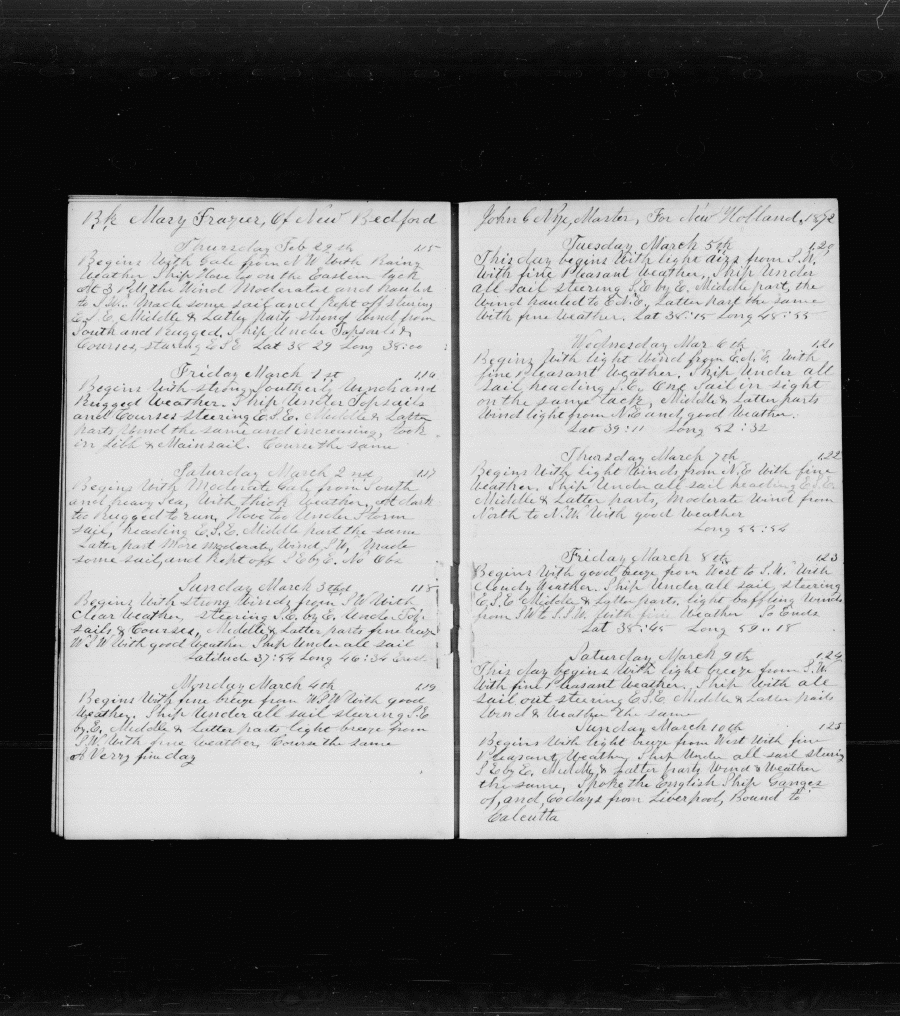 Bk Mary Frazier, Of New Bedford
Thursday Feb 29th 115
Begins With Gale from N W With Rainy
Weather Ship Hove to on the Eastern tack
At 3 P.M. the Wind Moderated and hauled
to S.W. Made some sail and Kept off steering
E.S.E. Middle & Latter parts strong Wind from
South and Rugged. Ship Under Topsails &
Courses, steering E S E Lat 38 29 Long 38:00
Friday March 1st 116
Begins With strong Southerly Winds and
Rugged Weather. Ship Under Topsails
and Courses steering E.S.E. Middle & Latter
parts Wind the same and increasing, took
in Jibb & Mainsail. Course the same
Saturday March 2nd 117
Begins With Moderate Gale from South
and heavy Sea, With thick Weather, At dark
to Rugged to run, Hove too Under Storm
sail, heading E.S.E. Middle part the same
Latter part More Moderate, Wind S.W. Made
some sail, and Kept off S E by E. No Obs
Sunday March 3rd 118
Begins With strong Winds from S W With
Clear Weather, steering S.E. by E. Under Top-
sails & Courses, Middle & Latter parts fine breeze
W S W With good Weather Ship Under all sail
Latitude 37:54 Long 46:34
Monday March 4th 119
Begins With fine breeze from W S W With good
Weather. Ship Under all sail steering S.E
by E. Middle & Latter parts light breeze from
S.W. With fine Weather, Course the same
A Verry fine day
John C Nye, Master, For New Holland, 1872
Tuesday March 5th 120
This day begins With light airs from S.W.
With fine Pleasant Weather, Ship Under
all sail steering S.E by E. Middle part, the
Wind hauled to E.N.E. Latter part the same
With fine Weather. Lat 38:15 Long 48:55
Wednesday Mar 6th 121
Begins With light Wind from E.N.E. With
fine Pleasant Weather. Ship Under all
Sail heading S.E. One Sail in sight
on the same tack, Middle & Latter parts
Wind light from N E and good Weather.
Lat 39:11 Long 52:32
Thursday March 7th 122
Begins With light Winds from N.E. With fine
Weather. Ship Under all sail heading E.S.E.
Middle & Latter parts, Moderate Wind from
North to N.W. With good Weather
Long 55:54
Friday March 8th 123
Begins With good breeze from West to S.W. With
Cloudy Weather. Ship Under all sail, steering
E.S.E Middle & Latter parts, light baffling Winds
from S W to S.S.W. With fine Weather So Ends
Lat 38:45 Long 59:18
Saturday March 9th 124
This day begins With light breeze from S.W.
With fine Pleasant Weather. Ship With all
Sail out steering E S.E. Middle & Latter parts
Wind & Weather the same
Sunday March 10th 125
Begins With light breeze from West With fine
Pleasant Weather, Ship Under all sail steering
S E by E. Middle & Latter parts Wind & Weather
the same, Spoke the English Ship Ganges
of, and, 60 days from Liverpool, Bound to
Calcutta